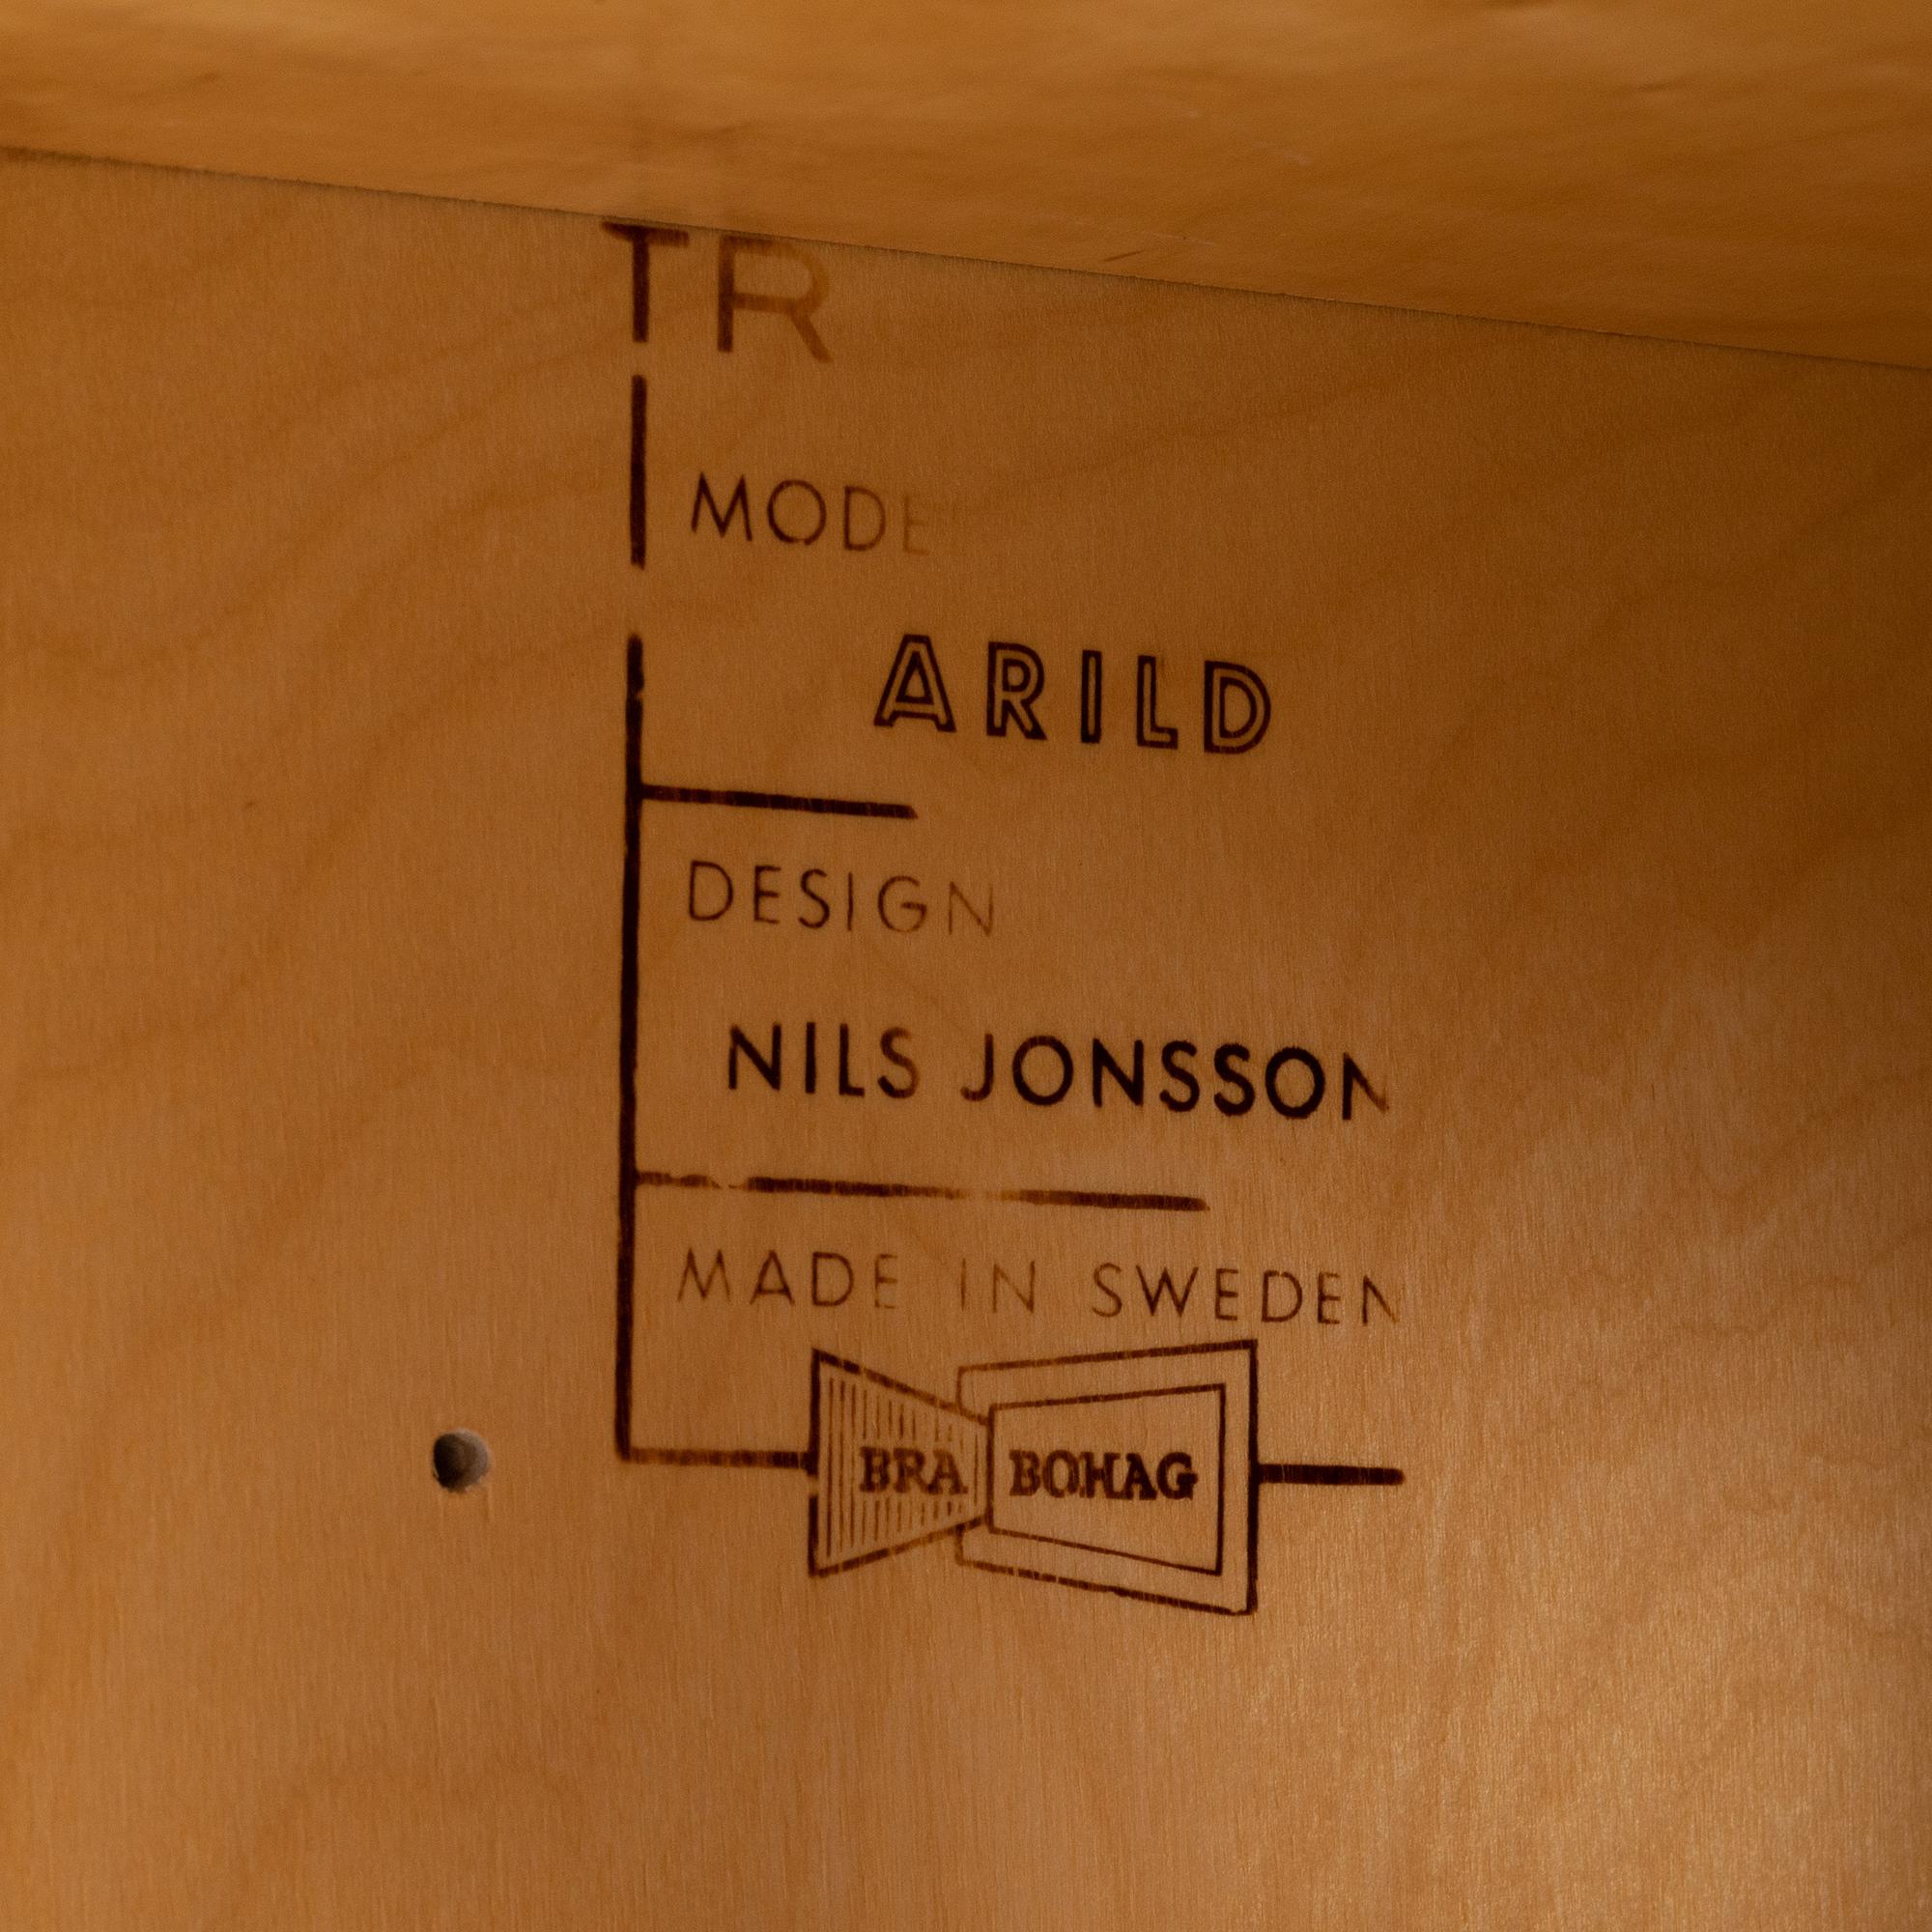 TR
MODE
ARILD
DESIGN
NILS JONSSON
MADE IN SWEDEN
BRA BOHAG